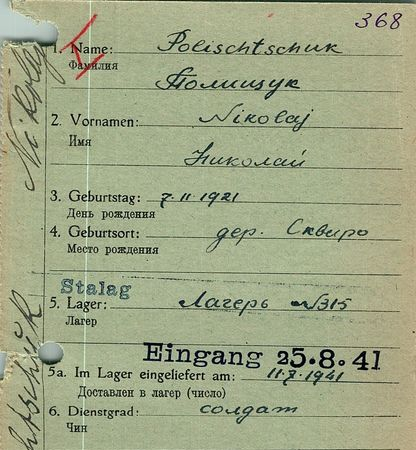 368
1. Name: Polischtschuk
Фамилия
Полищук
2. Vornamen: Nikolaj
Имя
Николай
3. Geburtstag: 7.11.1921
День рождения
4. Geburtsort: дер. Сквиро
Место рождения
Stalag
5. Lager: Лагерь №315
Лагер
Eingang 25.8.41
5a. Im Lager eingeliefert am: 11.7.1941
Доставлен в лагер (число)
6. Dienstgrad: солдат
Чин
Nikolaj
htschuk